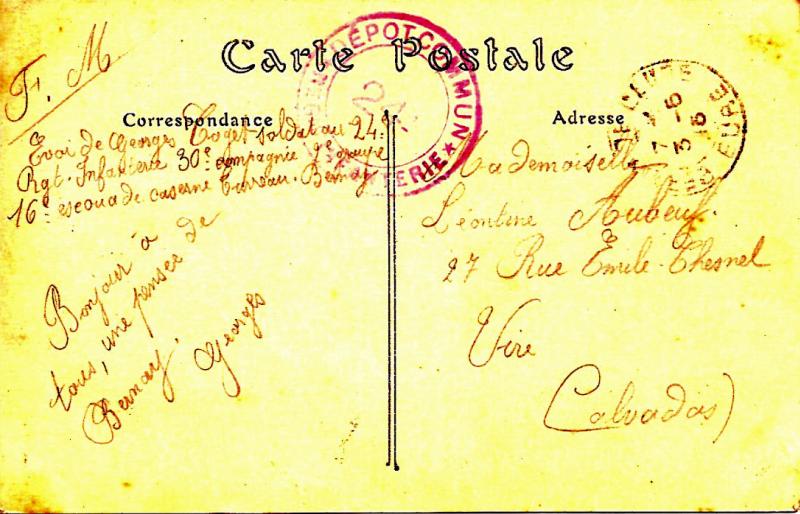 F. M
Carte Postale
DÉPOT COMMUN
24
INFANTERIE ★
Correspondance
Evoi de Georges soldat au 24e
Rgt. Infanterie 30e compagnie 9e groupe
16e escouade caserne Turreau. Bernay
Bonjour à
tous, une pensée de
Bernay.
Georges
Adresse
7 - 6
EURE
Mademoiselle
Léontine Aubeuf.
27 Rue Emile-Chesnel
Vire
Calvados)